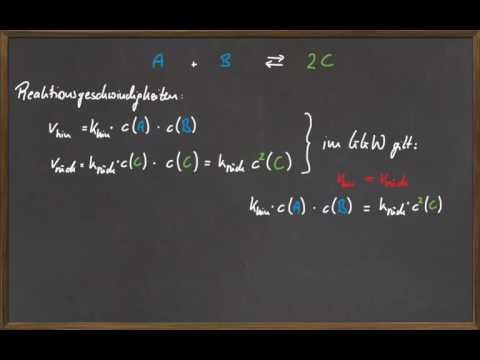 A + B ⇄ 2C
Reaktionsgeschwindigkeiten:
v_hin = k_hin · c(A) · c(B)
v_rück = k_rück · c(C) · c(C) = k_rück c²(C)
im GGW gilt:
v_hin = v_rück
k_hin · c(A) · c(B) = k_rück · c²(C)